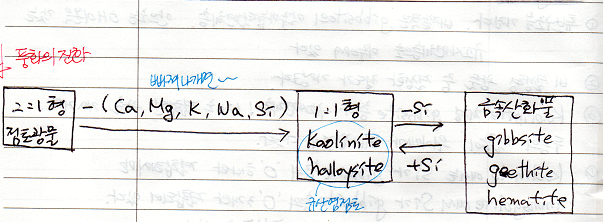 풍화의 전환
빠져나가면~
2:1형
점토광물
-(Ca, Mg, K, Na, Si)
1:1형
Kaolinite
halloysite
규산염점토
-Si
+Si
금속산화물
gibbsite
goethite
hematite